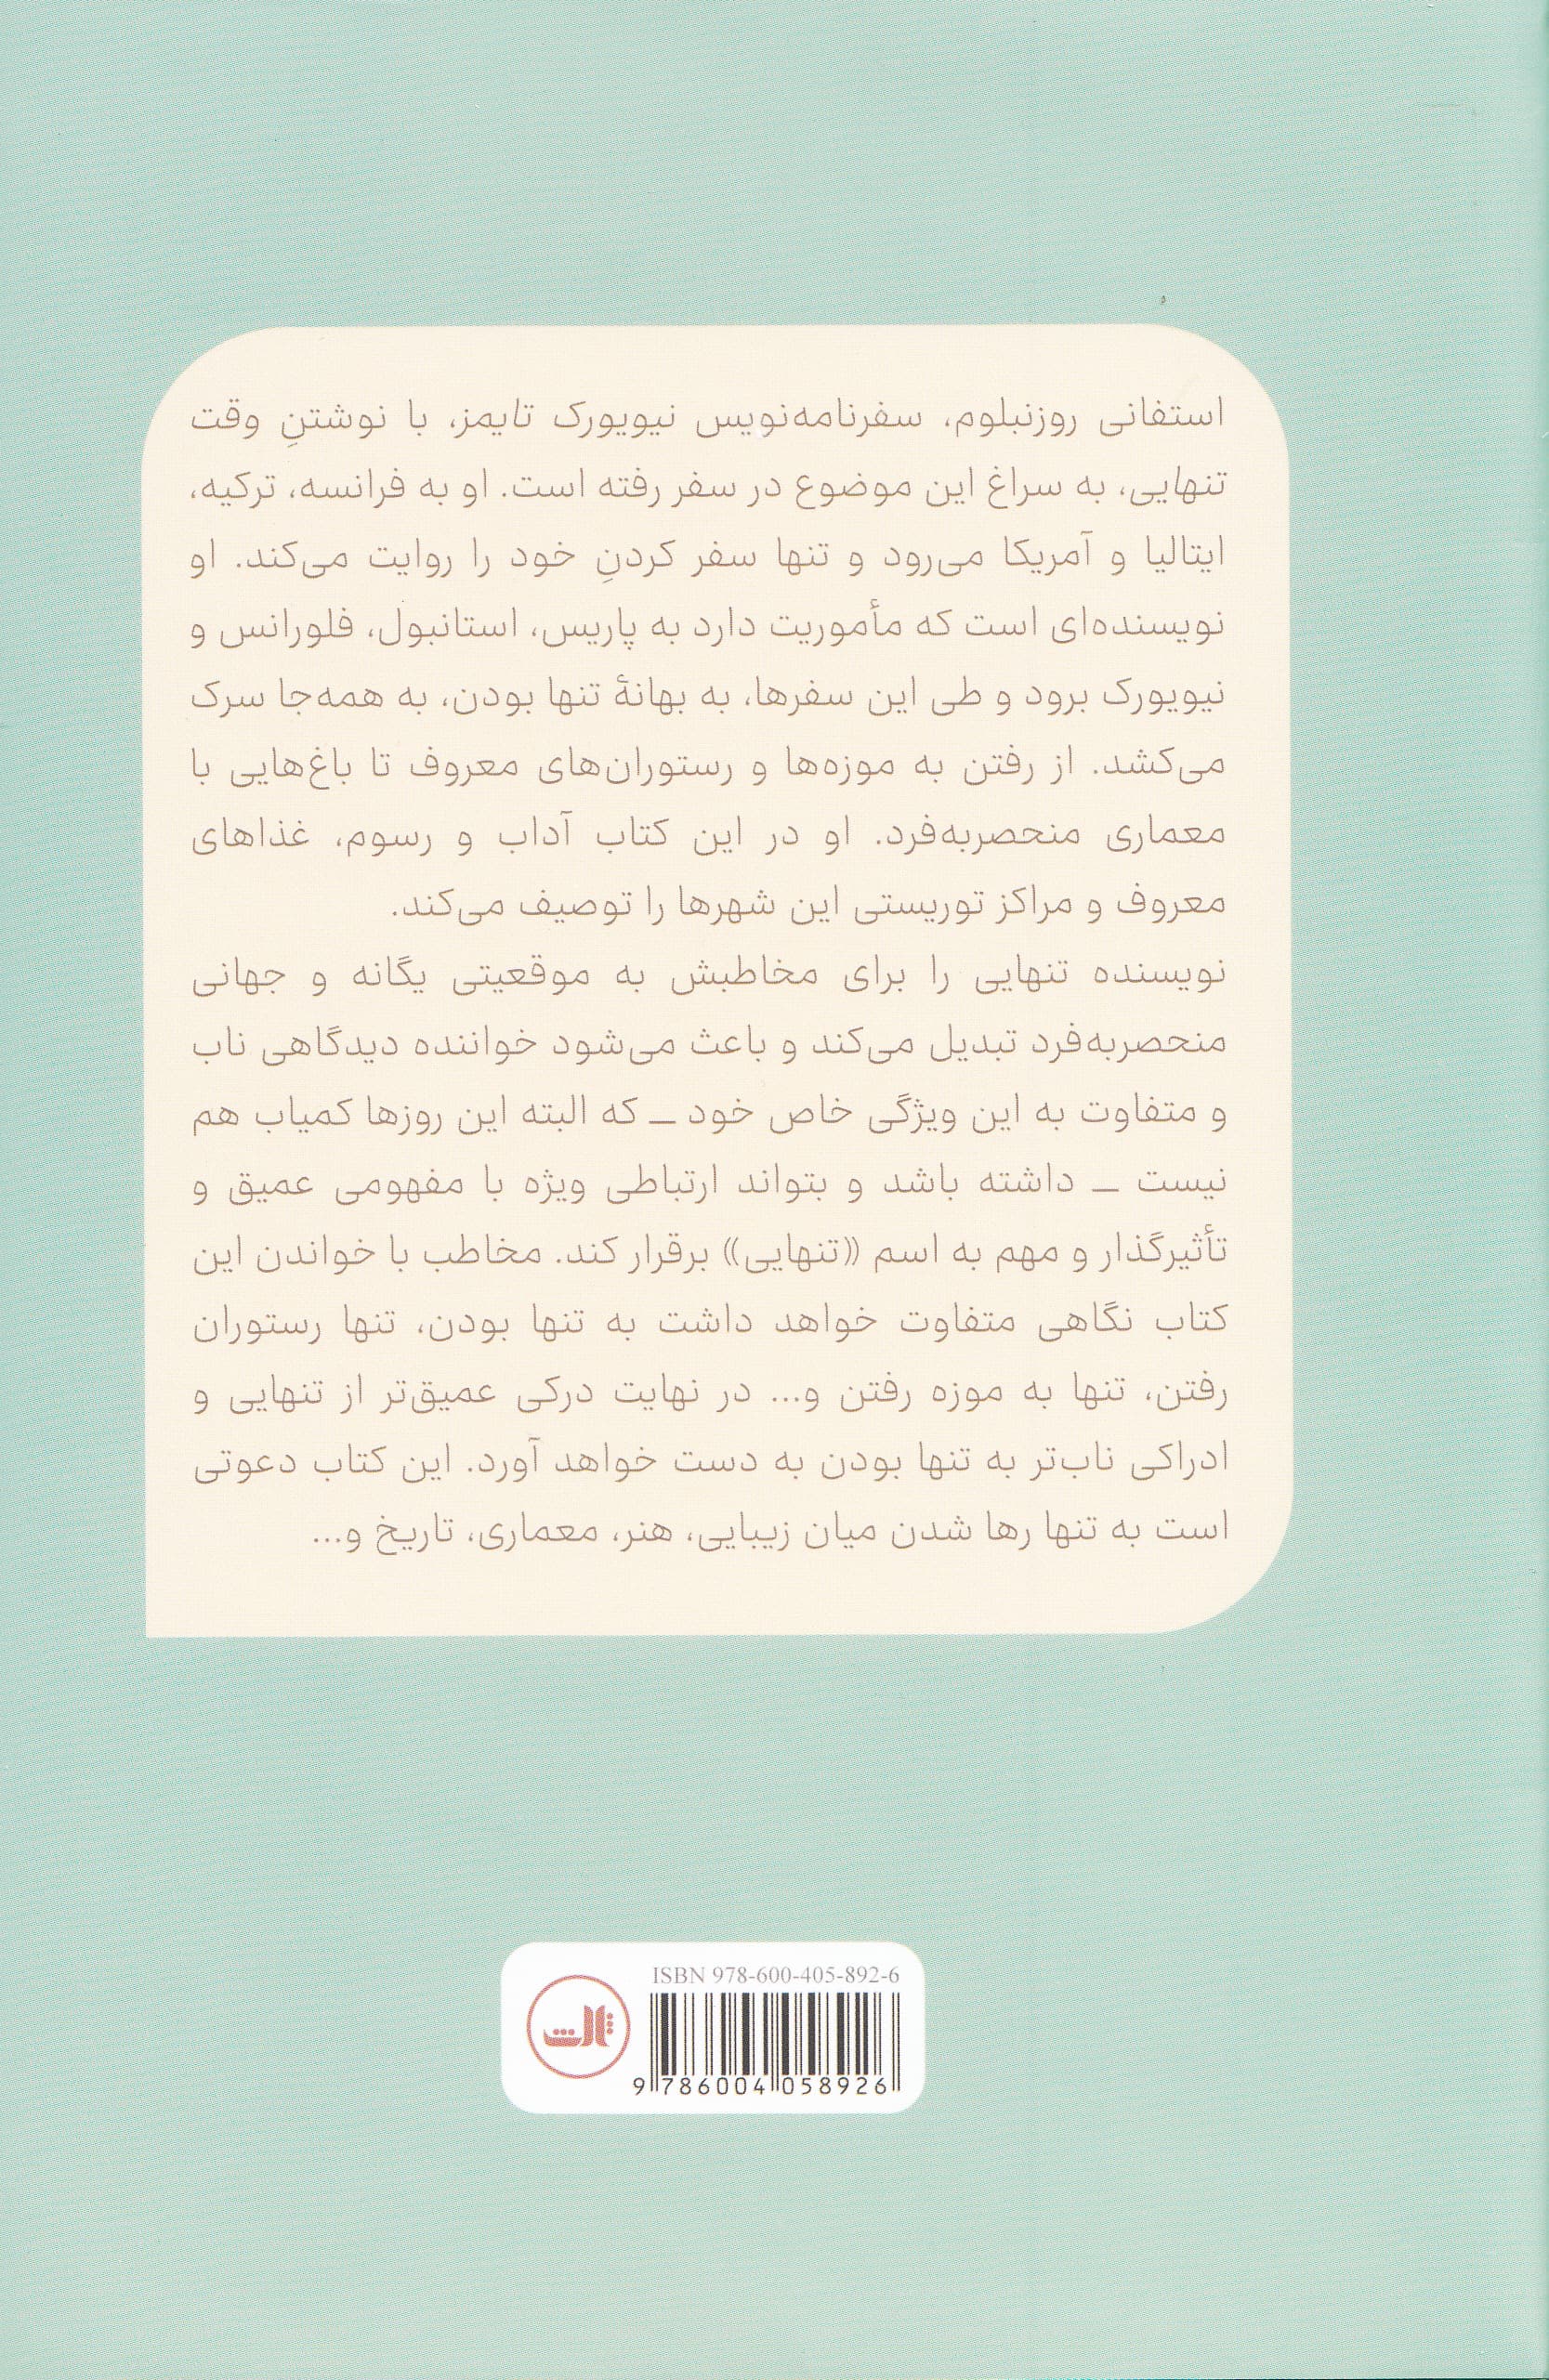 استفانی روزنبلوم، سفرنامه‌نویس نیویورک تایمز، با نوشتنِ وقت
تنهایی، به سراغ این موضوع در سفر رفته است. او به فرانسه، ترکیه،
ایتالیا و آمریکا می‌رود و تنها سفر کردنِ خود را روایت می‌کند. او
نویسنده‌ای است که مأموریت دارد به پاریس، استانبول، فلورانس و
نیویورک برود و طی این سفرها، به بهانهٔ تنها بودن، به همه‌جا سرک
می‌کشد. از رفتن به موزه‌ها و رستوران‌های معروف تا باغ‌هایی با
معماری منحصربه‌فرد. او در این کتاب آداب و رسوم، غذاهای
معروف و مراکز توریستی این شهرها را توصیف می‌کند.
نویسنده تنهایی را برای مخاطبش به موقعیتی یگانه و جهانی
منحصربه‌فرد تبدیل می‌کند و باعث می‌شود خواننده دیدگاهی ناب
و متفاوت به این ویژگی خاص خود ــ که البته این روزها کمیاب هم
نیست ــ داشته باشد و بتواند ارتباطی ویژه با مفهومی عمیق و
تأثیرگذار و مهم به اسم «تنهایی» برقرار کند. مخاطب با خواندن این
کتاب نگاهی متفاوت خواهد داشت به تنها بودن، تنها رستوران
رفتن، تنها به موزه رفتن و... در نهایت درکی عمیق‌تر از تنهایی و
ادراکی ناب‌تر به تنها بودن به دست خواهد آورد. این کتاب دعوتی
است به تنها رها شدن میان زیبایی، هنر، معماری، تاریخ و...
ISBN 978-600-405-892-6
ثالث
9 786004 058926